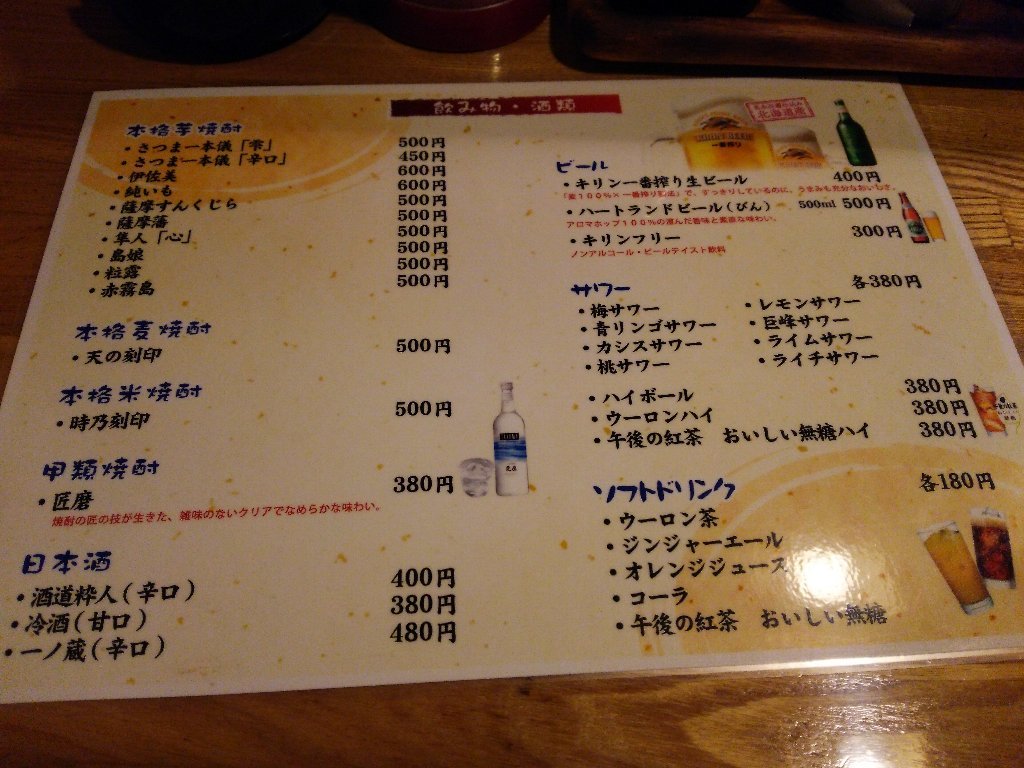 飲み物・酒類
本格芋焼酎
・さつま一本儀「雫」 500円
・さつま一本儀「辛口」 450円
・伊佐美 600円
・純いも 600円
・薩摩すんくじら 500円
・薩摩藩 500円
・隼人「心」 500円
・島娘 500円
・粒露 500円
・赤霧島 500円
本格麦焼酎
・天の刻印 500円
本格米焼酎
・時乃刻印 500円
甲類焼酎
・匠磨 380円
焼酎の匠の技が生きた、雑味のないクリアでなめらかな味わい。
日本酒
・酒道粋人（辛口） 400円
・冷酒（甘口） 380円
・一ノ蔵（辛口） 480円
北海道産
一番搾り
ビール
・キリン一番搾り生ビール 400円
「麦１００％×一番搾り製法」で、すっきりしているのに、うまみも充分なおいしさ。
・ハートランドビール（びん） 500ml 500円
アロマホップ１００％の澄んだ旨味と素直な味わい。
・キリンフリー 300円
ノンアルコール・ビールテイスト飲料
サワー 各380円
・梅サワー
・青リンゴサワー
・カシスサワー
・桃サワー
・レモンサワー
・巨峰サワー
・ライムサワー
・ライチサワー
・ハイボール 380円
・ウーロンハイ 380円
・午後の紅茶　おいしい無糖ハイ 380円
ソフトドリンク 各180円
・ウーロン茶
・ジンジャーエール
・オレンジジュース
・コーラ
・午後の紅茶　おいしい無糖